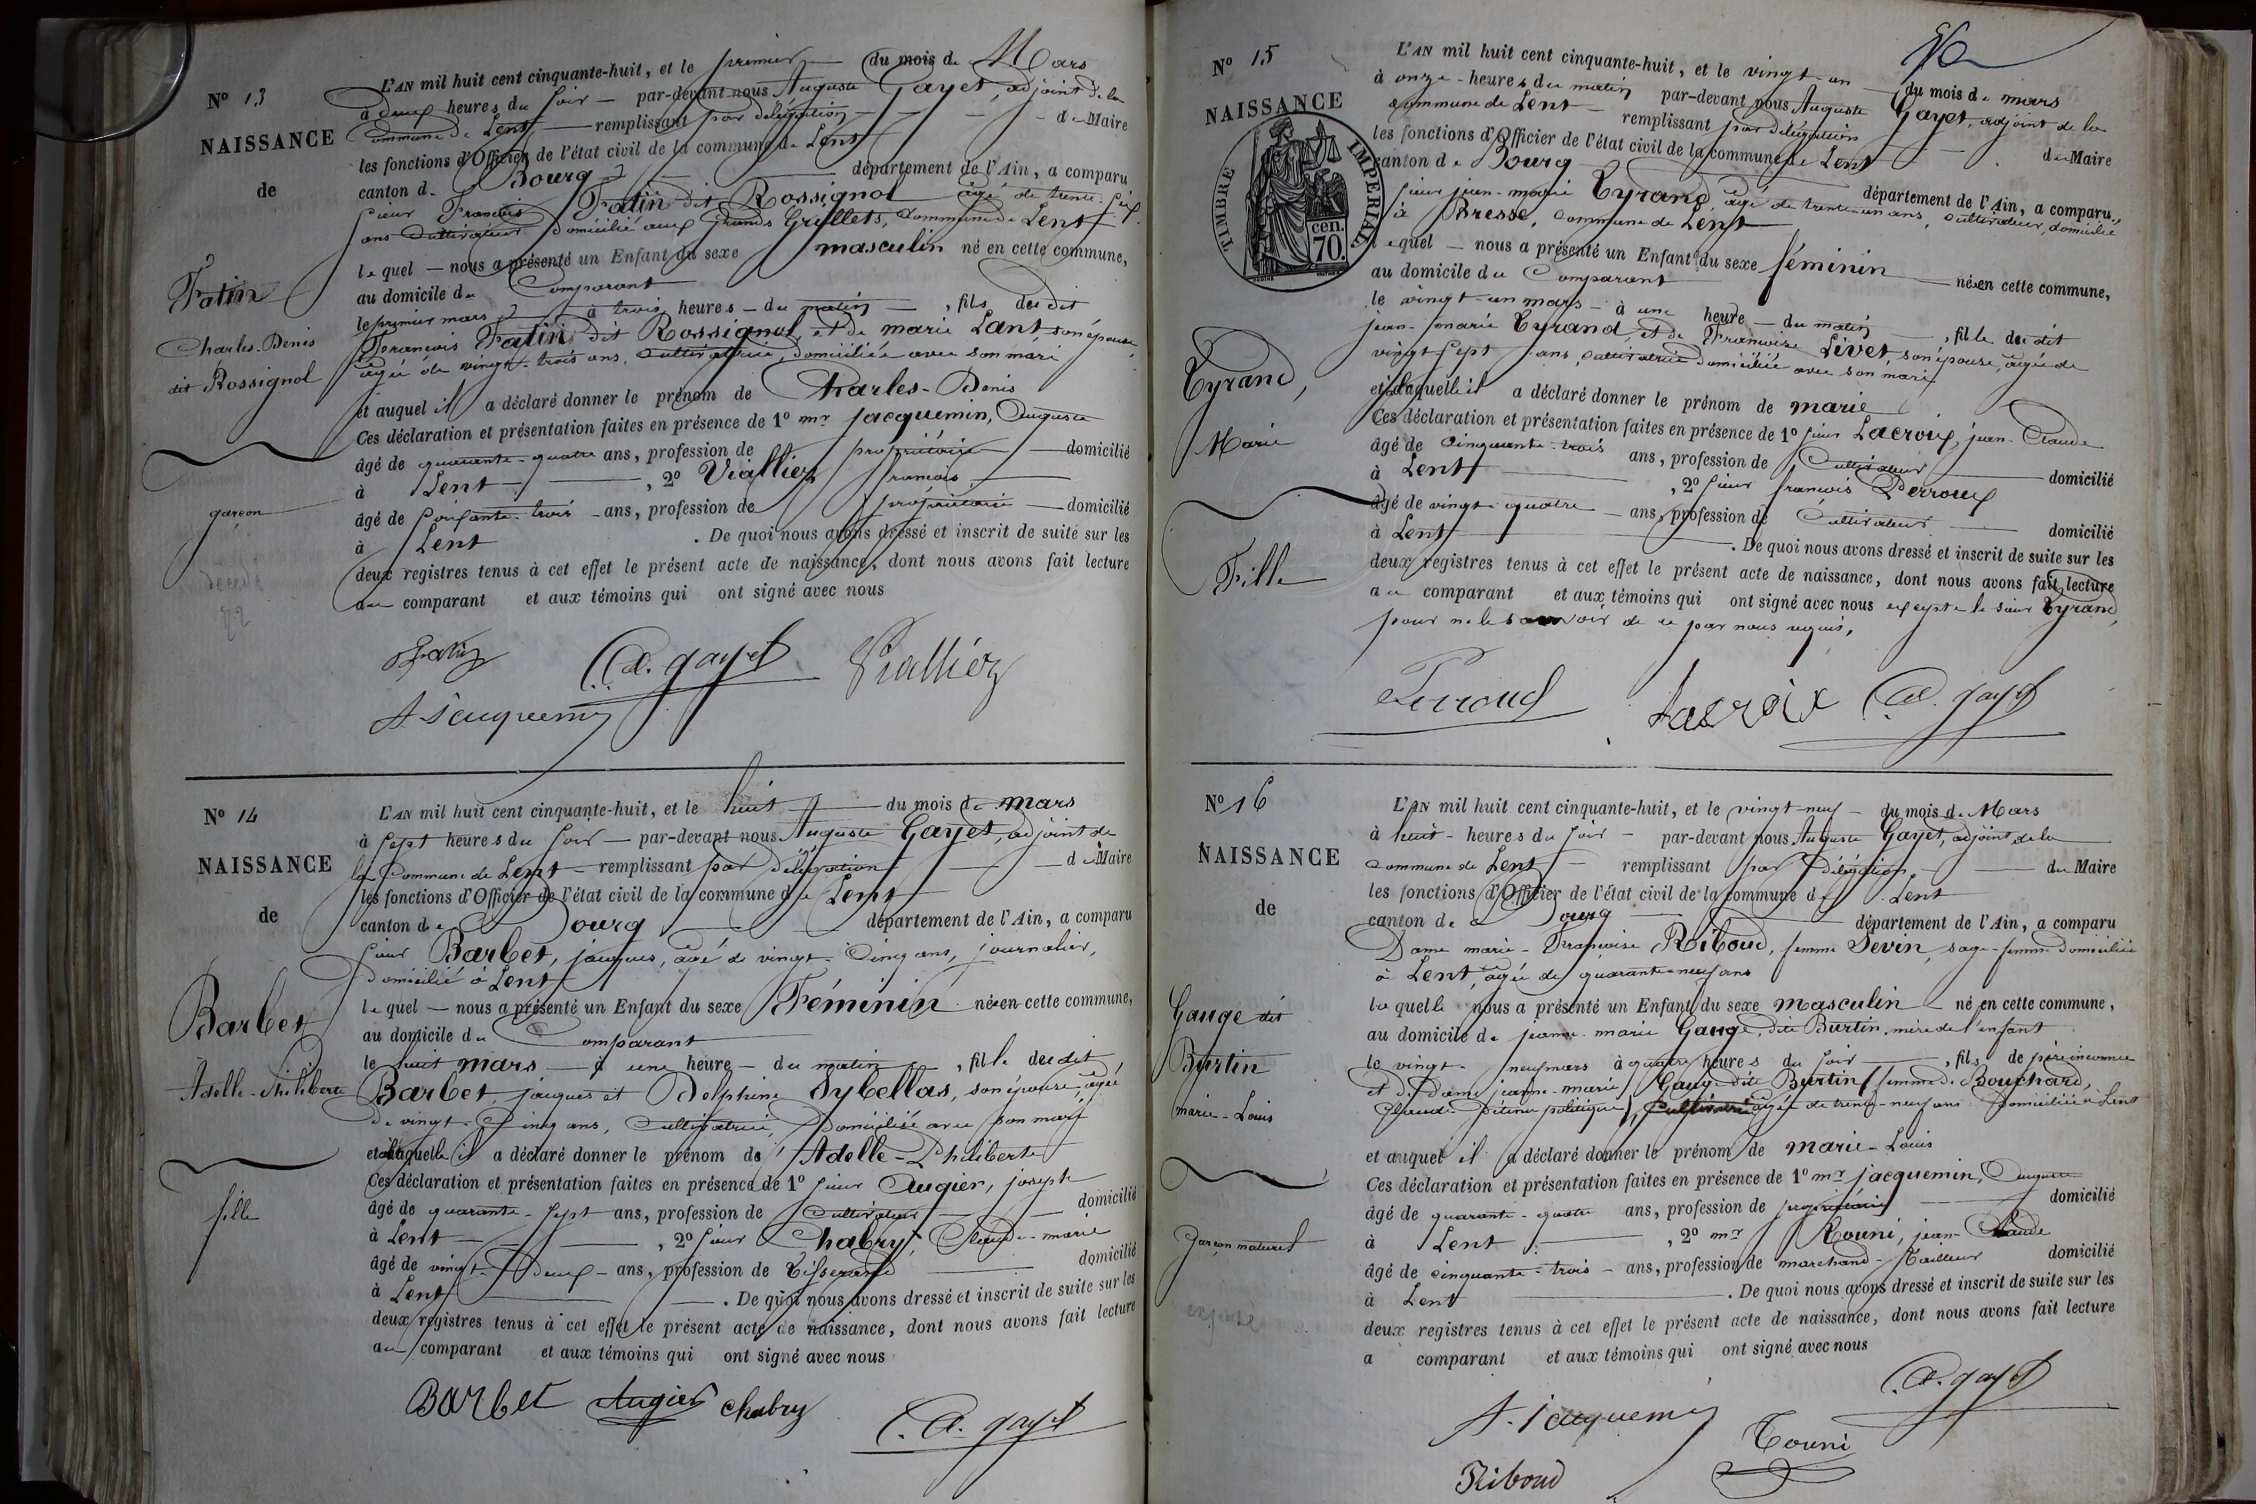 N° 13
NAISSANCE
de
Fatin
Charles-Denis
dit Rossignol
garçon
décédé
L'AN mil huit cent cinquante-huit, et le premier du mois de Mars
à deux heures du soir par-devant nous Auguste Gayet, adjoint de la
commune de Lent remplissant par délégation du Maire
les fonctions d'Officier de l'état civil de la commune de Lent
canton de Bourg département de l'Ain, a comparu
sieur François Fatin dit Rossignol âgé de trente-six
ans cultivateur domicilié aux Grands Grillets, commune de Lent
lequel nous a présenté un Enfant du sexe masculin né en cette commune,
au domicile du Comparant
le premier mars à trois heures du matin, fils du dit
François Fatin dit Rossignol, et de marie Lant, son épouse,
âgée de vingt-trois ans, cultivatrice, domiciliée avec son mari
et auquel il a déclaré donner le prénom de Charles-Denis
Ces déclaration et présentation faites en présence de 1° mr jacquemin, Auguste
âgé de quarante-quatre ans, profession de propriétaire domicilié
à Lent, 2° Viallier françois
âgé de soixante-trois ans, profession de propriétaire domicilié
à Lent. De quoi nous avons dressé et inscrit de suite sur les
deux registres tenus à cet effet le présent acte de naissance, dont nous avons fait lecture
au comparant et aux témoins qui ont signé avec nous
Fatin A. gayet Viallier
A Jacquemin
N° 14
NAISSANCE
de
Barbet
Adelle-Philiberte
fille
L'AN mil huit cent cinquante-huit, et le huit du mois de mars
à sept heures du soir par-devant nous Auguste Gayet, adjoint de
la Commune de Lent remplissant par délégation du Maire
les fonctions d'Officier de l'état civil de la commune de Lent
canton de Bourg département de l'Ain, a comparu
sieur Barbet, jacques, âgé de vingt-cinq ans, journalier,
domicilié à Lent
lequel nous a présenté un Enfant du sexe Féminin née en cette commune,
au domicile du Comparant
le huit mars à une heure du matin, fille du dit
Barbet, jacques et Delphine Sybellas, son épouse, âgée
de vingt-cinq ans, cultivatrice, domiciliée avec son mari
et à laquelle il a déclaré donner le prénom de Adelle-Philiberte
Ces déclaration et présentation faites en présence de 1° sieur Augier, joseph
âgé de quarante-sept ans, profession de cultivateur domicilié
à Lent, 2° sieur Chabry, Claude-marie
âgé de vingt-deux ans, profession de Tisserand domicilié
à Lent. De quoi nous avons dressé et inscrit de suite sur les
deux registres tenus à cet effet le présent acte de naissance, dont nous avons fait lecture
au comparant et aux témoins qui ont signé avec nous
Barbet Augier Chabry
A. gayet
N° 15
NAISSANCE
TIMBRE IMPERIAL
70 cen.
Tyrand,
Marie
Fille
L'AN mil huit cent cinquante-huit, et le vingt-un du mois de mars
à onze heures du matin par-devant nous Auguste Gayet, adjoint de la
commune de Lent remplissant par délégation du Maire
les fonctions d'Officier de l'état civil de la commune de Lent
canton de Bourg département de l'Ain, a comparu,
sieur jean-marie Tyrand, âgé de trente-un ans, cultivateur, domicilié
à Bresse, Commune de Lent
lequel nous a présenté un Enfant du sexe féminin née en cette commune,
au domicile du Comparant
le vingt-un mars à une heure du matin, fille du dit
jean-marie Tyrand, et de Françoise Livet, son épouse, âgée de
vingt-sept ans, cultivatrice domiciliée avec son mari
et à laquelle il a déclaré donner le prénom de marie
Ces déclaration et présentation faites en présence de 1° sieur Lacroix, jean-Claude
âgé de cinquante-trois ans, profession de Cultivateur domicilié
à Lent, 2° sieur françois Perroud
âgé de vingt-quatre ans, profession de Cultivateur domicilié
à Lent. De quoi nous avons dressé et inscrit de suite sur les
deux registres tenus à cet effet le présent acte de naissance, dont nous avons fait lecture
au comparant et aux témoins qui ont signé avec nous excepté le sieur Tyrand,
pour ne le savoir de ce par nous requis.
Perroud Lacroix A. gayet
N° 16
NAISSANCE
de
Gauge dit
Burtin
marie-Louis
garçon naturel
L'AN mil huit cent cinquante-huit, et le vingt-neuf du mois de Mars
à huit heures du soir par-devant nous Auguste Gayet, adjoint de la
commune de Lent remplissant par délégation du Maire
les fonctions d'Officier de l'état civil de la commune de Lent
canton de Bourg département de l'Ain, a comparu
Dame marie-Françoise Riboud, femme Sevin, sage-femme domiciliée
à Lent, âgée de quarante-neuf ans
laquelle nous a présenté un Enfant du sexe masculin né en cette commune,
au domicile de jeanne-marie Gauge, dite Burtin, mère de l'enfant
le vingt-neuf mars à quatre heures du soir, fils de père inconnu
et de Dame jeanne-marie Gauge dite Burtin (femme de Bouchard,
Claude Détenu politique), âgée de trente-neuf ans Domiciliée à Lent
et auquel il a déclaré donner le prénom de marie-Louis
Ces déclaration et présentation faites en présence de 1° mr jacquemin, Auguste
âgé de quarante-quatre ans, profession de propriétaire domicilié
à Lent, 2° mr Touni, jean-Claude
âgé de cinquante-trois ans, profession de marchand-Tailleur domicilié
à Lent. De quoi nous avons dressé et inscrit de suite sur les
deux registres tenus à cet effet le présent acte de naissance, dont nous avons fait lecture
a comparant et aux témoins qui ont signé avec nous
A. gayet
A. Jacquemin Touni
Riboud